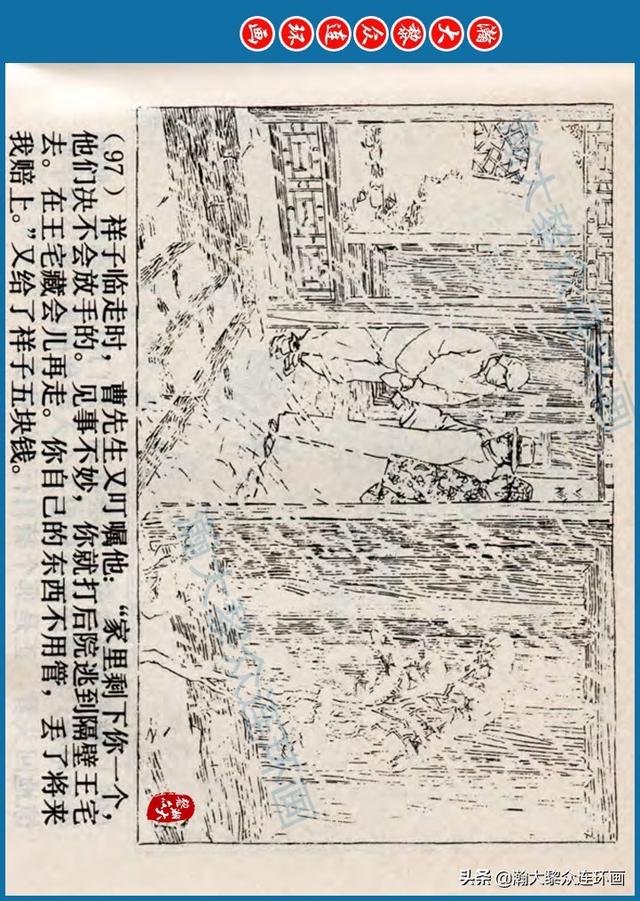 瀚大黎众连环画
瀚大黎众连环画
瀚大黎众连环画
瀚大黎众
（97）祥子临走时，曹先生又叮嘱他：“家里剩下你一个，
他们决不会放手的。见事不妙，你就打后院逃到隔壁王宅
去。在王宅藏会儿再走。你自己的东西不用管，丢了将来
我赔上。”又给了祥子五块钱。
头条 @瀚大黎众连环画